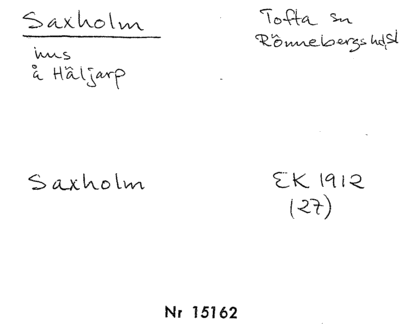 Saxholm
Tofta sn
Rönnebergs hd, Sk
hus
å Häljarp
Saxholm
EK 1912
(27)
Nr 15162